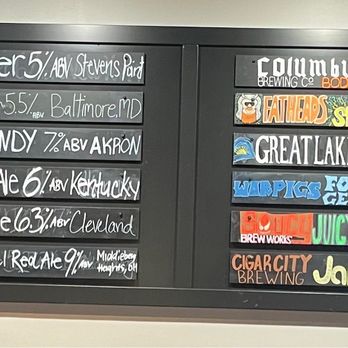 er 5% ABV Stevens Point
5.5% ABV Baltimore, MD
NDY 7% ABV AKRON
Ale 6% ABV Kentucky
e 6.3% ABV Cleveland
l Real Ale 9% ABV Middleburg Heights, OH
Columbu
BREWING CO BOD
FATHEADS S
GREAT LAK
WARPIGS FO
GE
BREW WORKS JUIC
CIGAR CITY Ja
BREWING